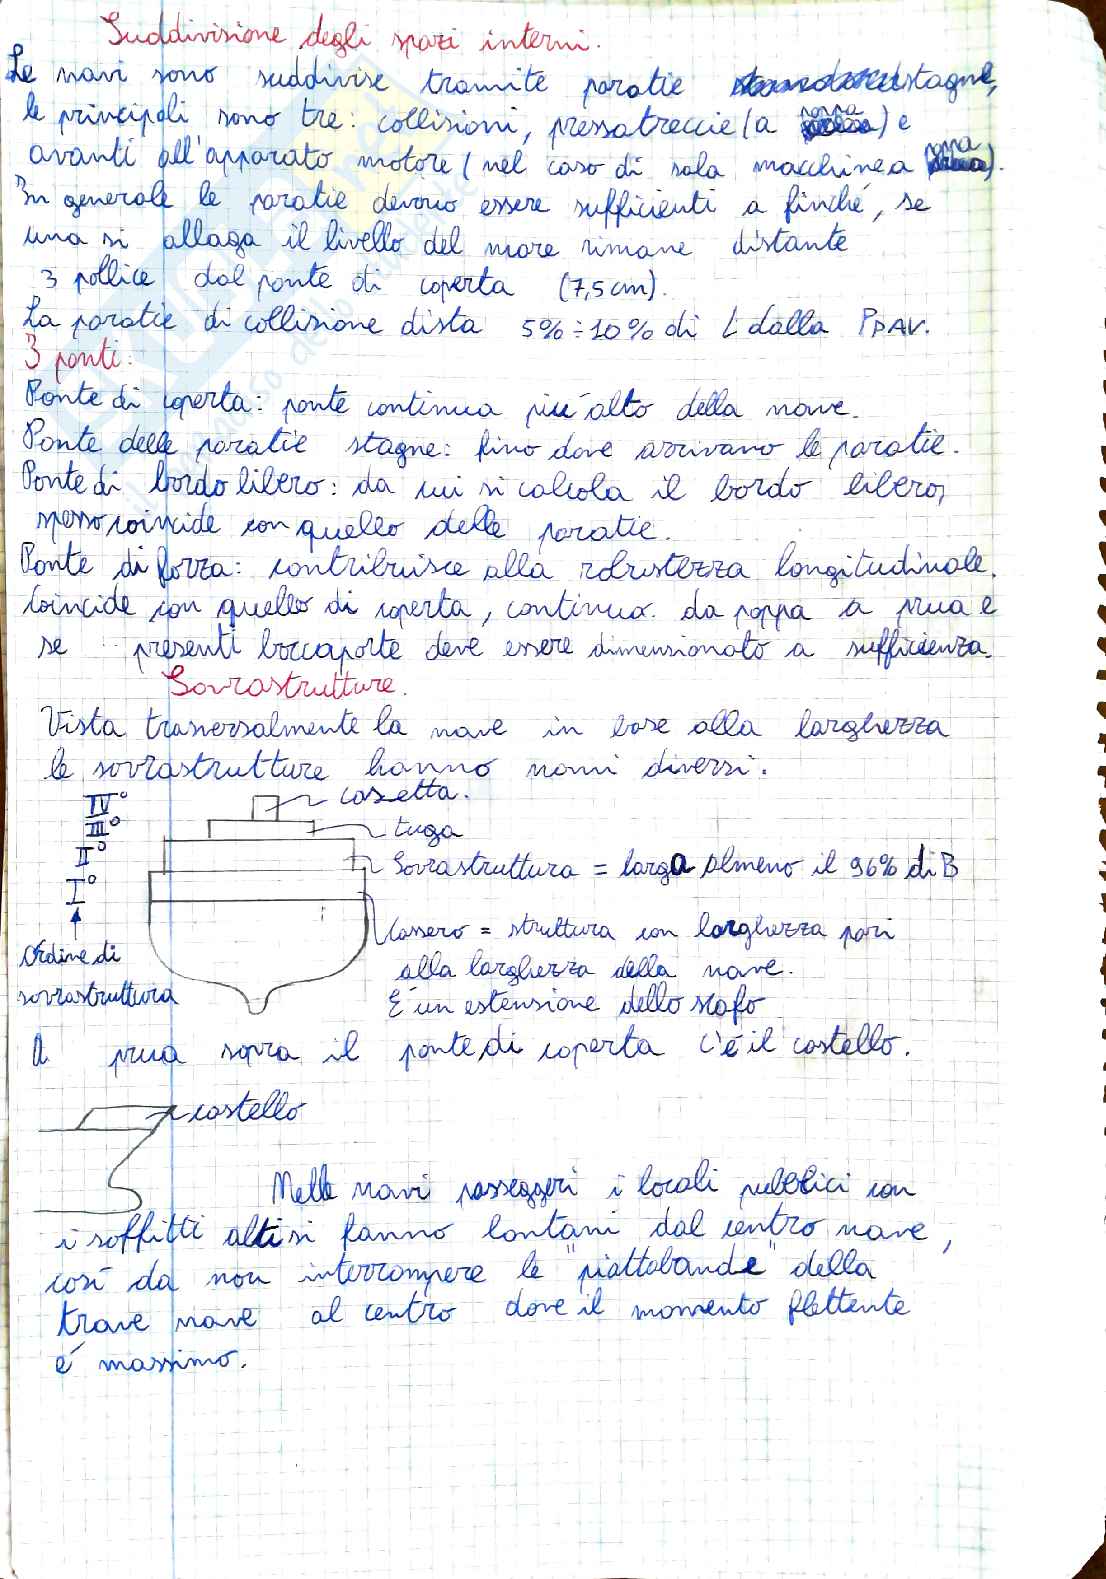 Suddivisione degli spazi interni.
Le navi sono suddivise tramite paratie stagne,
le principali sono tre: collisioni, pressatreccie (a poppa) e
avanti all'apparato motore (nel caso di sala macchine a poppa).
In generale le paratie devono essere sufficienti a finché, se
una si allaga il livello del mare rimane distante
3 pollice dal ponte di coperta (7,5 cm).
La paratie di collisione dista 5% ÷ 10% di L dalla PPAV.
3 ponti:
Ponte di coperta: ponte continua più alto della nave.
Ponte delle paratie stagne: fino dove arrivano le paratie.
Ponte di bordo libero: da cui si calcola il bordo libero,
spesso coincide con quello delle paratie.
Ponte di forza: contribuisce alla robustezza longitudinale.
Coincide con quello di coperta, continua da poppa a prua e
se presenti boccaporte deve essere dimensionato a sufficienza.
Sovrastrutture.
Vista trasversalmente la nave in base alla larghezza
le sovrastrutture hanno nomi diversi.
IV° cassetta.
III° tuga
II° Sovrastruttura = larga almeno il 96% di B
I°
Cassero = struttura con larghezza pari
Ordine di alla larghezza della nave.
sovrastruttura È un estensione dello scafo
A prua sopra il ponte di coperta c'é il castello.
castello
Nelle navi passeggeri i locali pubblici con
i soffitti alti si fanno lontani dal centro nave,
così da non interrompere le "piattabande" della
trave nave al centro dove il momento flettente
é massimo.